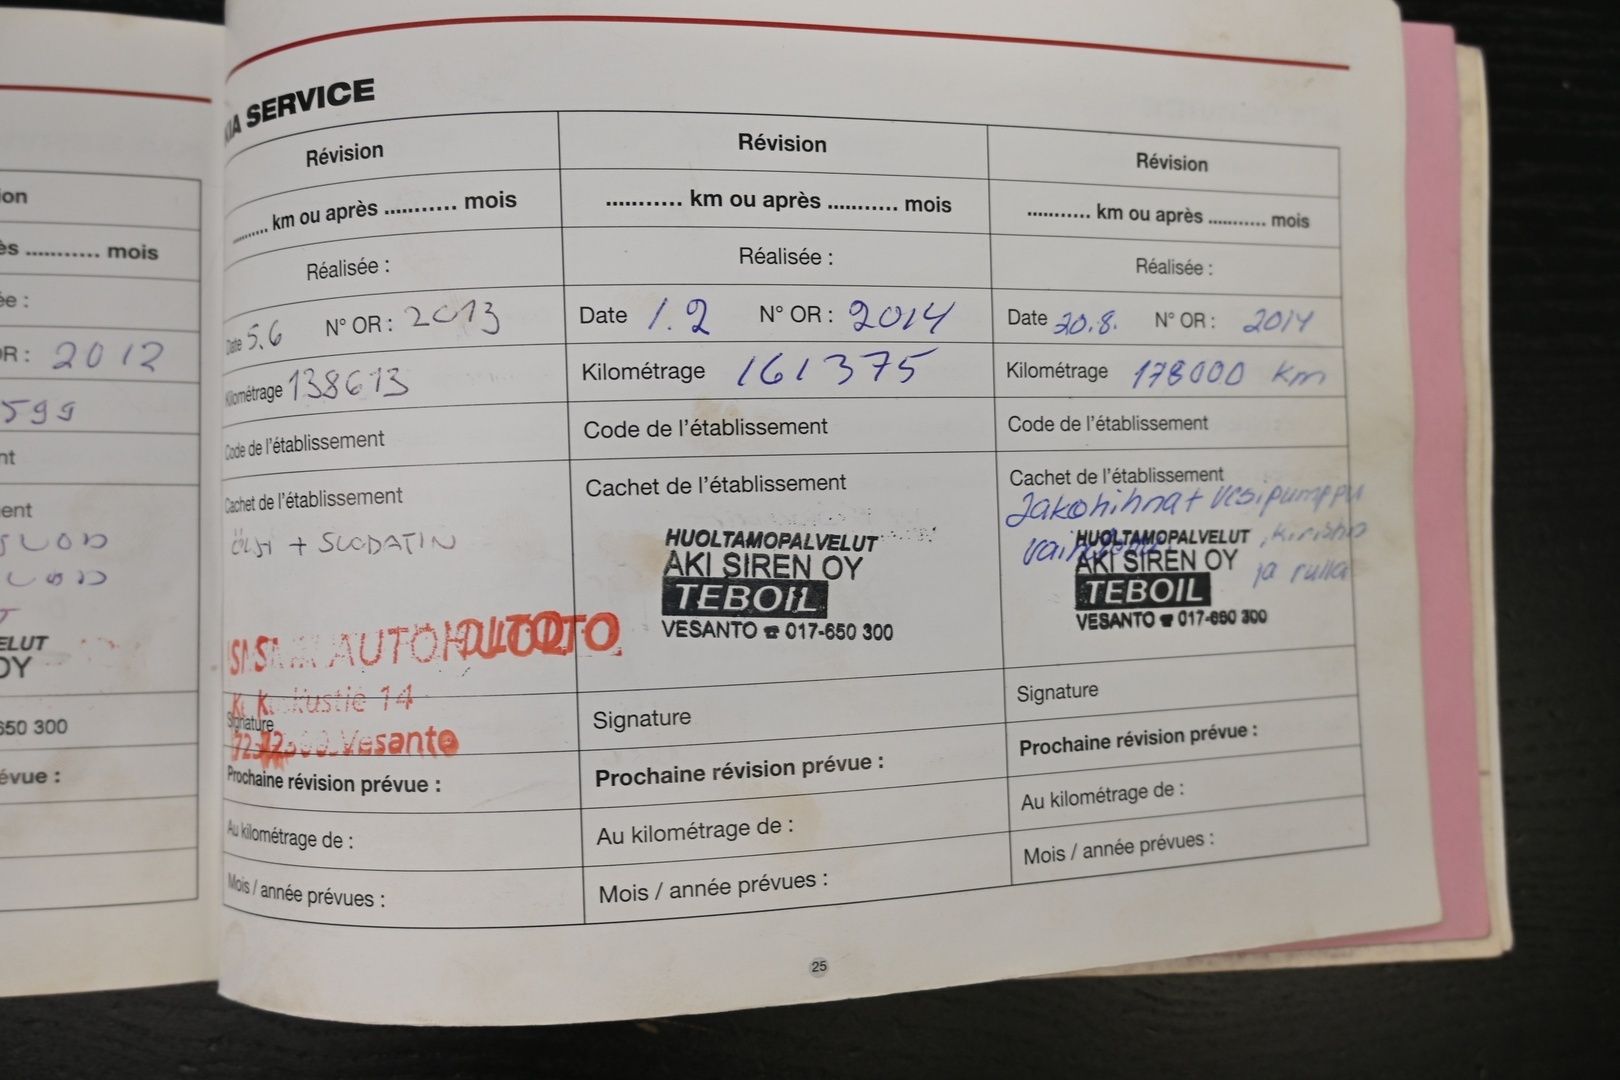 ion
ès ........... mois
ée :
OR : 2012
599
nt
ent
ELUT
OY
650 300
évue :
KIA SERVICE
Révision
.......... km ou après ........... mois
Réalisée :
Date 5.6 N° OR : 2013
Kilométrage 138613
Code de l'établissement
Cachet de l'établissement
ÖLJY + SUODATIN
AUTOHUOLTO
Keskustie 14
Signature
72300 Vesanto
Prochaine révision prévue :
Au kilométrage de :
Mois / année prévues :
Révision
........... km ou après ........... mois
Réalisée :
Date 1.2 N° OR : 2014
Kilométrage 161375
Code de l'établissement
Cachet de l'établissement
HUOLTAMOPALVELUT
AKI SIREN OY
TEBOIL
VESANTO ☎ 017-650 300
Signature
Prochaine révision prévue :
Au kilométrage de :
Mois / année prévues :
Révision
........... km ou après ........... mois
Réalisée :
Date 20.8. N° OR : 2014
Kilométrage 178000 km
Code de l'établissement
Cachet de l'établissement
Jakohihna + vesipumppu
, kiristin
ja rulla
HUOLTAMOPALVELUT
AKI SIREN OY
TEBOIL
VESANTO ☎ 017-650 300
Signature
Prochaine révision prévue :
Au kilométrage de :
Mois / année prévues :
25